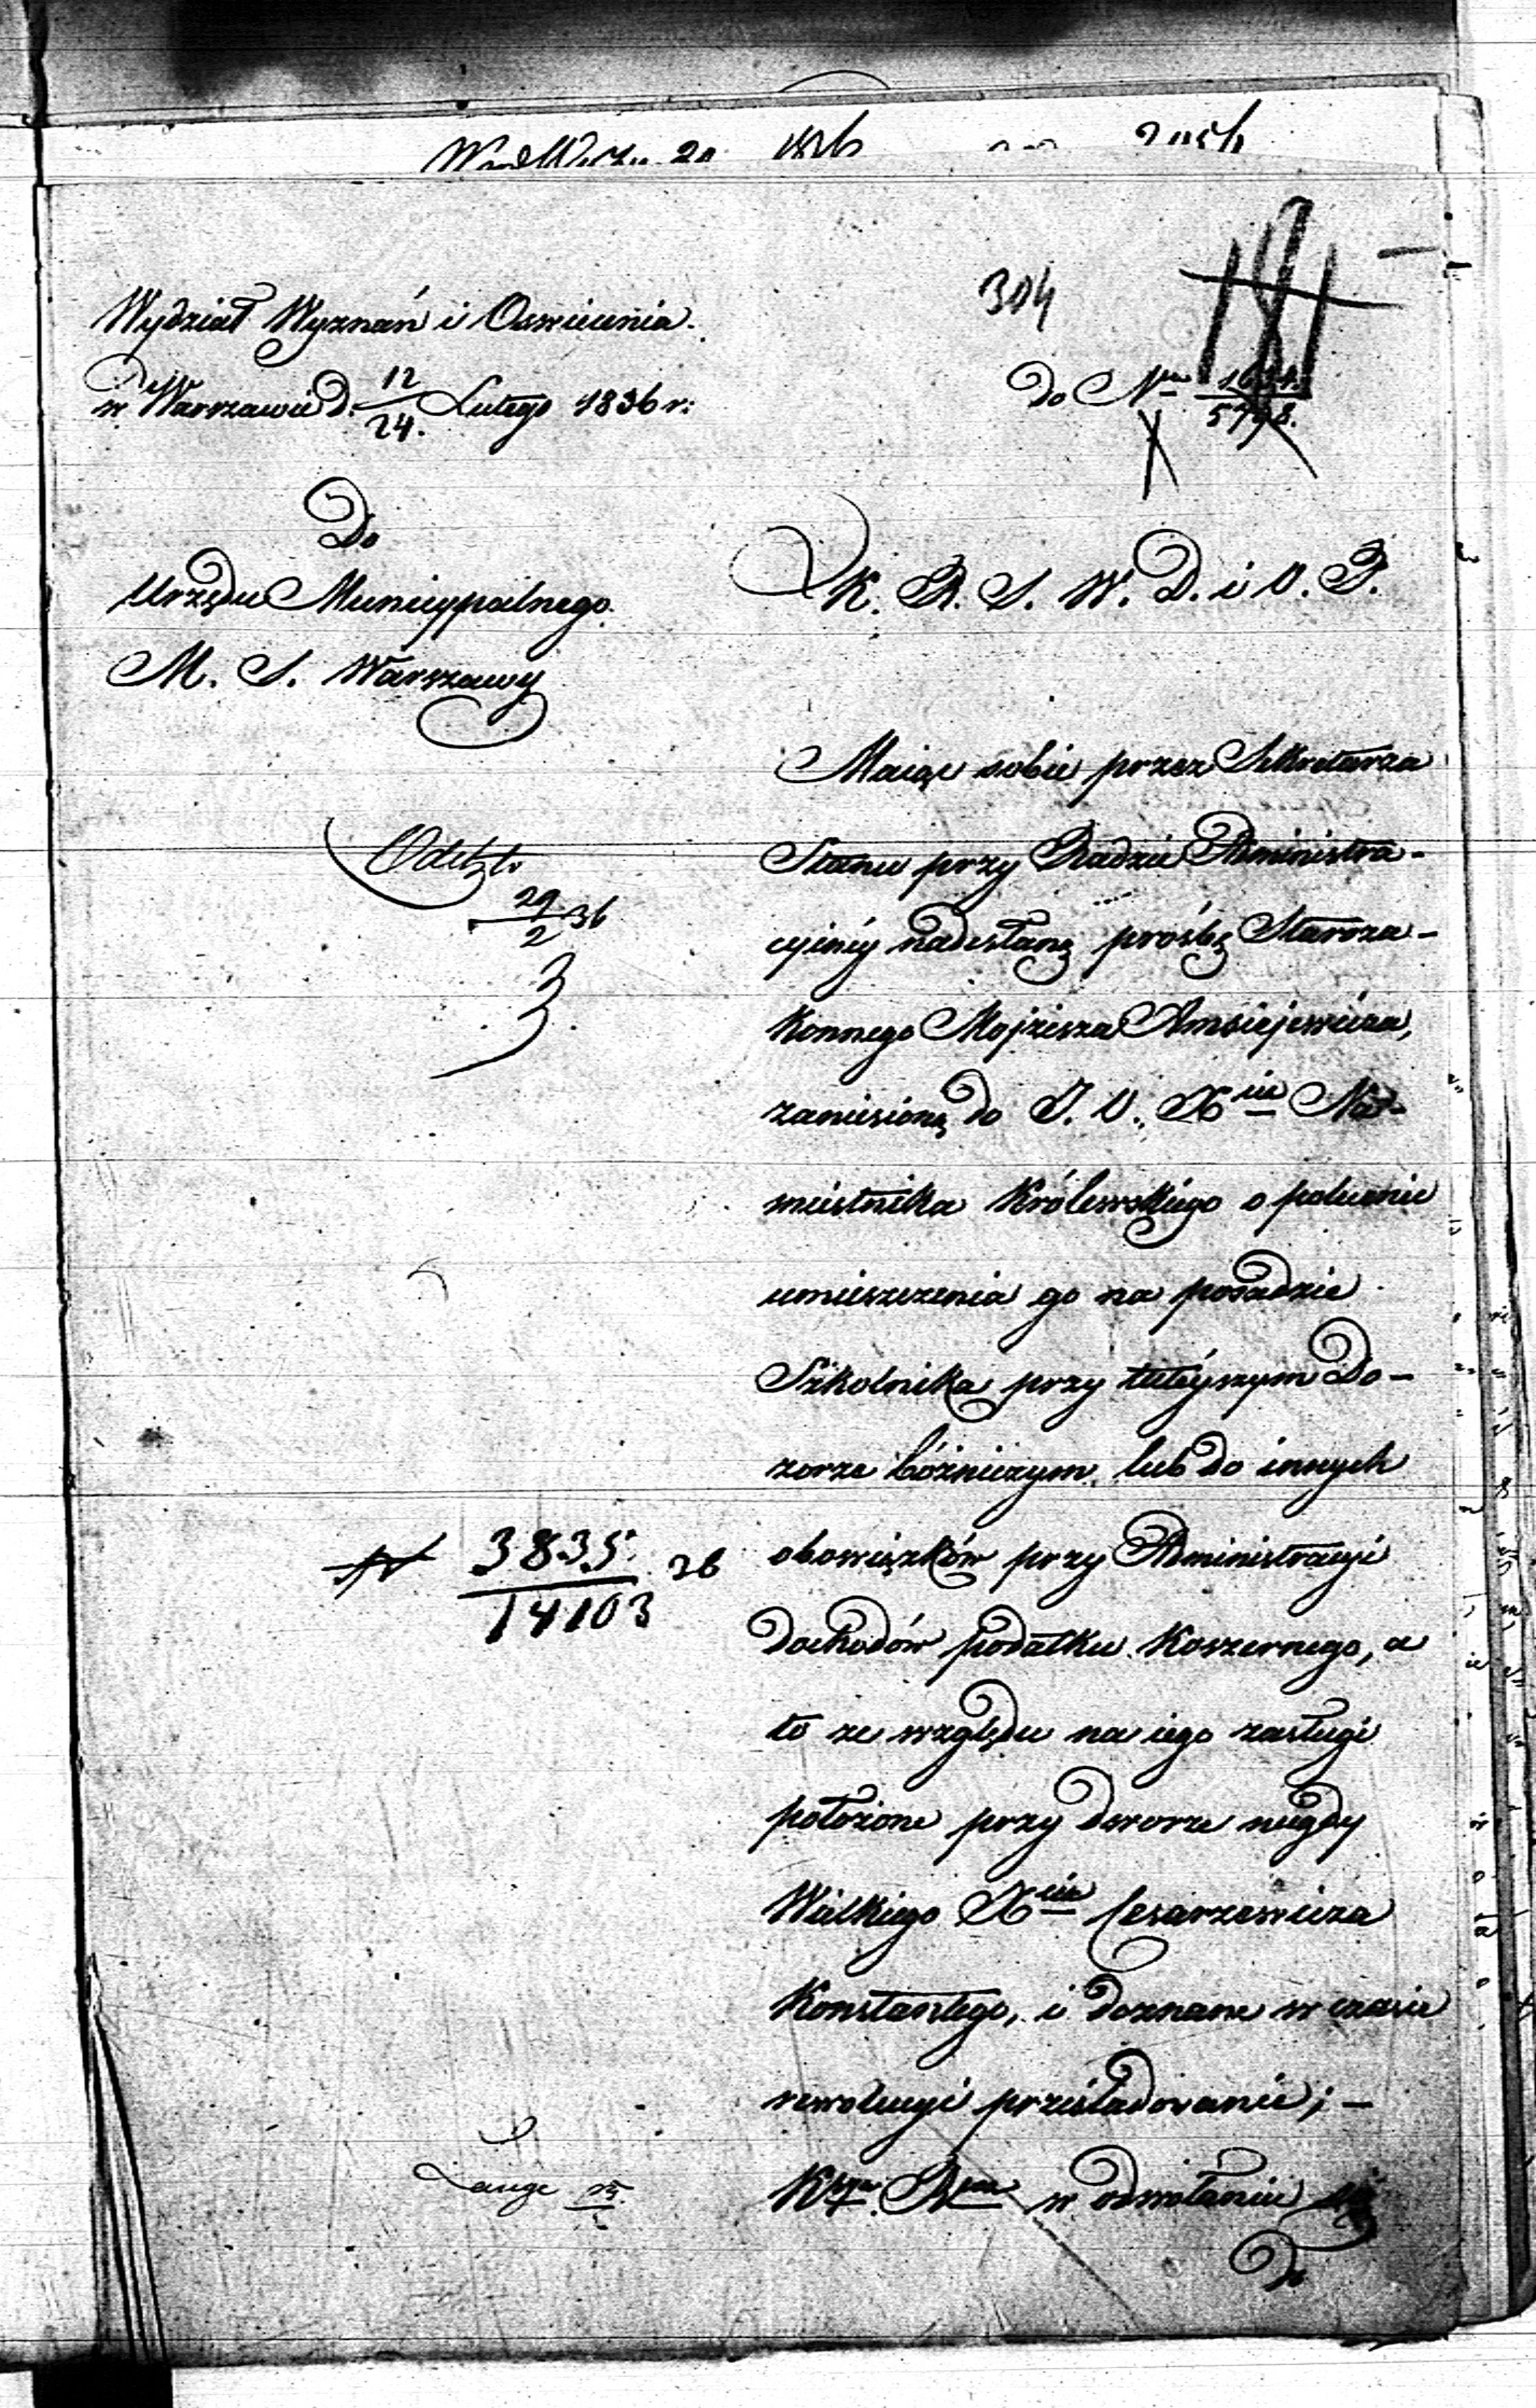 304
Wydział Wyznań i Oswiecenia.
w Warszawie d. 12/24. Lutego 1836 r.
do Nru
Do
Urzędu Municypalnego
M. S. Warszawy
K. R. S. W. D. i O. P.
Maiąc sobie przez Sekretarza
Stanu przy Radzie Administra-
cyinéy nadesłaną prośbę Staroza-
konnego Mojżesza Amsiejewicza,
zaniesioną do J. O. Xcia Na-
miestnika Królewskiego o polecenie
umieszczenia go na posadzie
Szkolnika przy tuteyszym Do-
zorze bóżniczym, lub do innych
obowiązków przy Administracyi
dochodów podatku Koszernego, a
to ze względu na iego zasługi
położone przy dworze niegdy
Wielkiego Xcia Cesarzewicza
Konstantego, i doznane w czasie
rewolucyi prześladowanie; -
w odwołaniu się
do
29/2 36
N 3835/14103 36
Lange